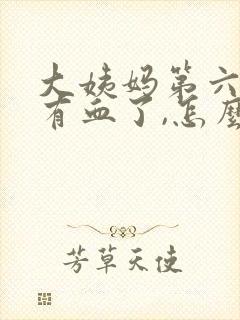 大姨妈第六
有血了,怎麼
芳草天使